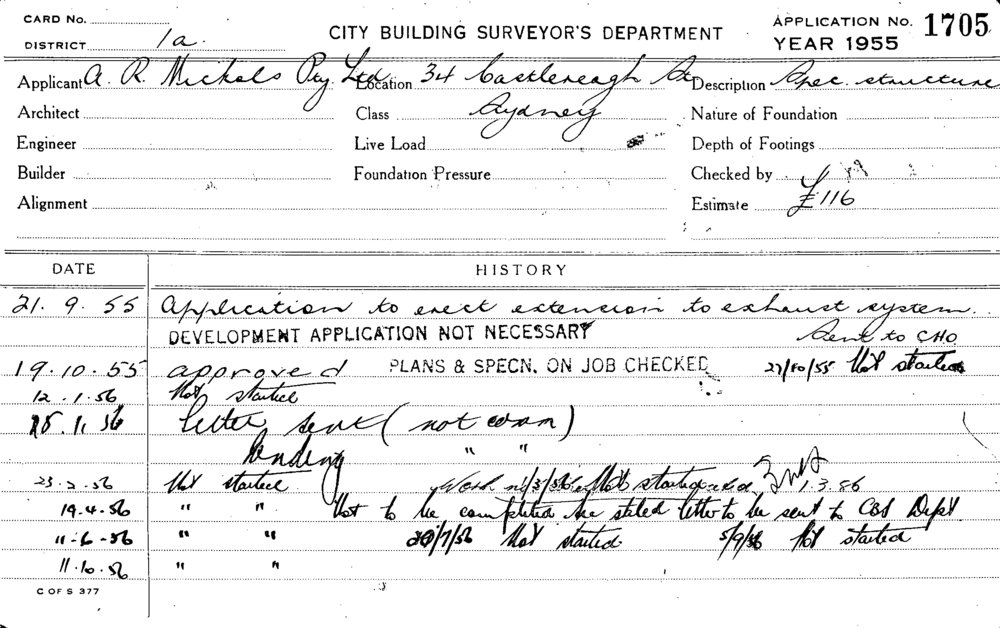 CARD No.
DISTRICT 1a.
CITY BUILDING SURVEYOR'S DEPARTMENT
APPLICATION No. 1705
YEAR 1955
Applicant A. R. Mickels Pty. Ltd Location 34 Castlereagh St Description Spec. structure
Architect Class Sydney Nature of Foundation
Engineer Live Load Depth of Footings
Builder Foundation Pressure Checked by
Alignment Estimate £116
DATE HISTORY
21. 9. 55 Application to erect extension to exhaust system.
DEVELOPMENT APPLICATION NOT NECESSARY Sent to CHO
19.10.55 approved PLANS & SPECN. ON JOB CHECKED 27/10/55 Not started
12.1.56 Not started
letter sent (not comm)
Pending " "
23.2.56 Not started Work Not started 1.3.56
19.4.56 " " Not to be completed he stated letter to be sent to CBS Dept
11-6-56 " " 20/7/56 Not started 5/9/56 Not started
11.10.56 " "
C OF S 377